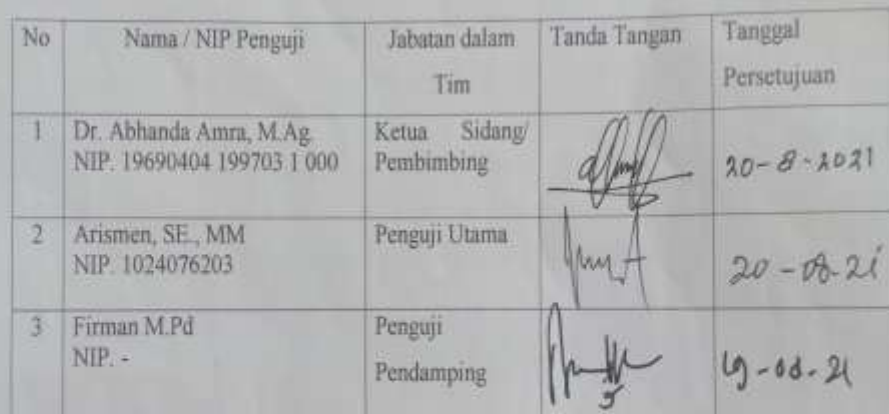 No
Nama / NIP Penguji
Jabatan dalam
Tim
Tanda Tangan
Tanggal
Persetujuan
1
Dr. Abhanda Amra, M.Ag.
NIP. 19690404 199703 1 000
Ketua Sidang/
Pembimbing
20-8-2021
2
Arismen, SE., MM
NIP. 1024076203
Penguji Utama
20-08-21
3
Firman M.Pd
NIP. -
Penguji
Pendamping